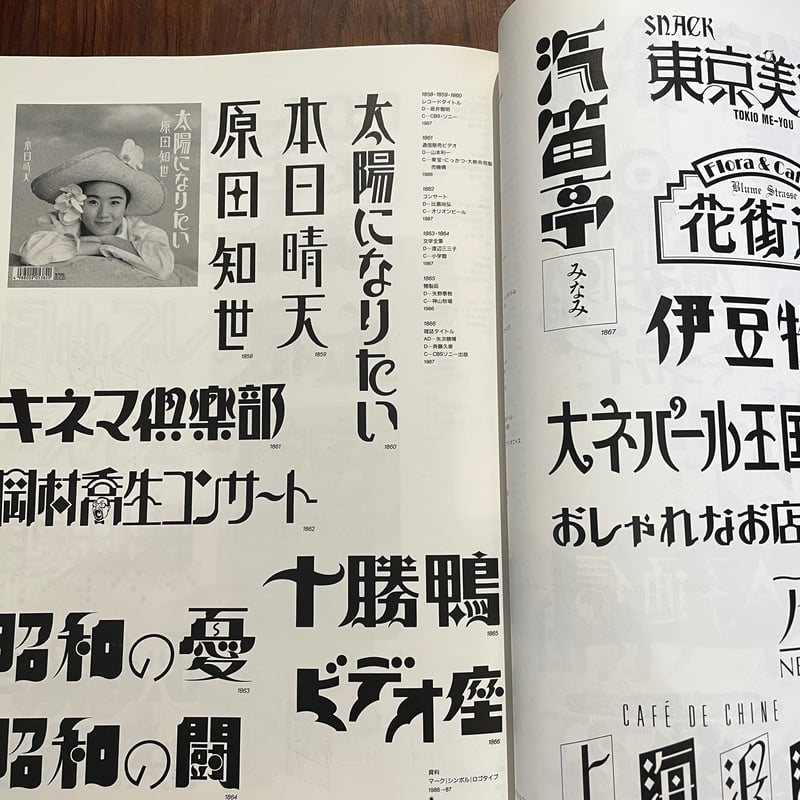 太陽になりたい
原田知世
本日晴天
原田知世
1858
本日晴天
1859
太陽になりたい
1860
1858・1859・1860
レコードタイトル
D—坂井智明
C—CBS・ソニー
1987
1861
通信販売ビデオ
D—山本利一
1986
1862
コンサート
D—比嘉尚弘
C—オリオンビール
1987
1863・1864
文学全集
D—渡辺三三子
C—小学館
1987
1865
精製品
D—矢野泰教
C—神山牧場
1986
1866
雑誌タイトル
AD—矢次勝博
D—斉藤久美
C—CBSソニー出版
1987
キネマ倶楽部
1861
岡村喬生コンサート
1862
昭和の憂
1863
昭和の闘
1864
十勝鴨
1865
ビデオ座
1866
資料
マーク(シンボル)ロゴタイプ
1986—87
笛亭
みなみ
1867
SNACK
東京美
TOKIO ME-YOU
Flora & Car
Blume Strasse
花街
伊豆
大ネパール王国
おしゃれなお店
NE
CAFÉ DE CHINE
上海